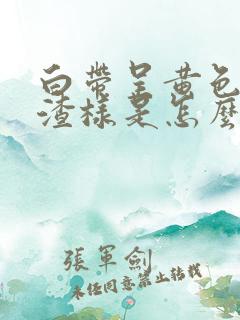 白帶呈黃色
渣樣是怎麼
張軍劍
未經同意禁止轉載